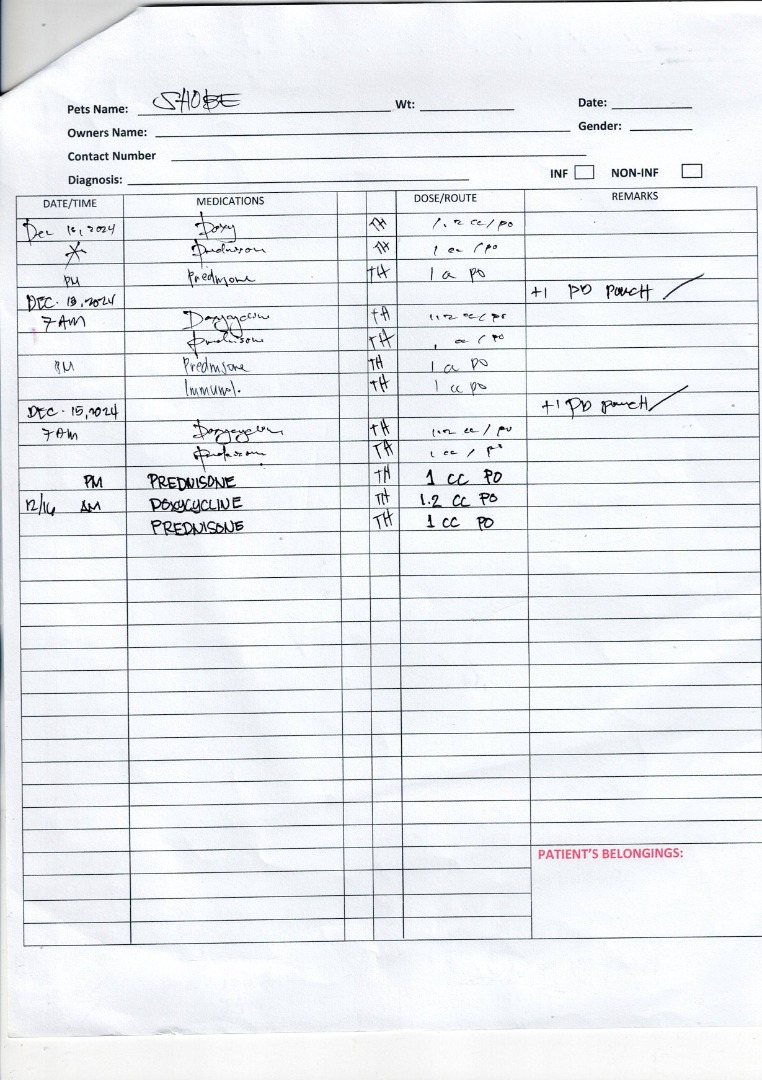 Pets Name: SHOBE Wt: Date:
Owners Name: Gender:
Contact Number
Diagnosis: INF NON-INF
DATE/TIME MEDICATIONS DOSE/ROUTE REMARKS
Dec 2024 Doxy TH 1.2 cc / po
Prednisone TH 1 cc / po
PM Prednisone TH 1 cc PO
DEC. 13, 2024 +1 PD POUCH
7 AM Doxycycline TH 1.2 cc / po
Prednisone TH 1 cc / po
PM Prednisone TH 1 cc PO
Immunol. TH 1 cc PO
DEC. 15, 2024 +1 PD pouch
7 AM Doxycycline TH 1.2 cc / po
Prednisone TH 1 cc / po
PM PREDNISONE TH 1 CC PO
12/16 AM DOXYCYCLINE TH 1.2 CC PO
PREDNISONE TH 1 CC PO
PATIENT'S BELONGINGS: